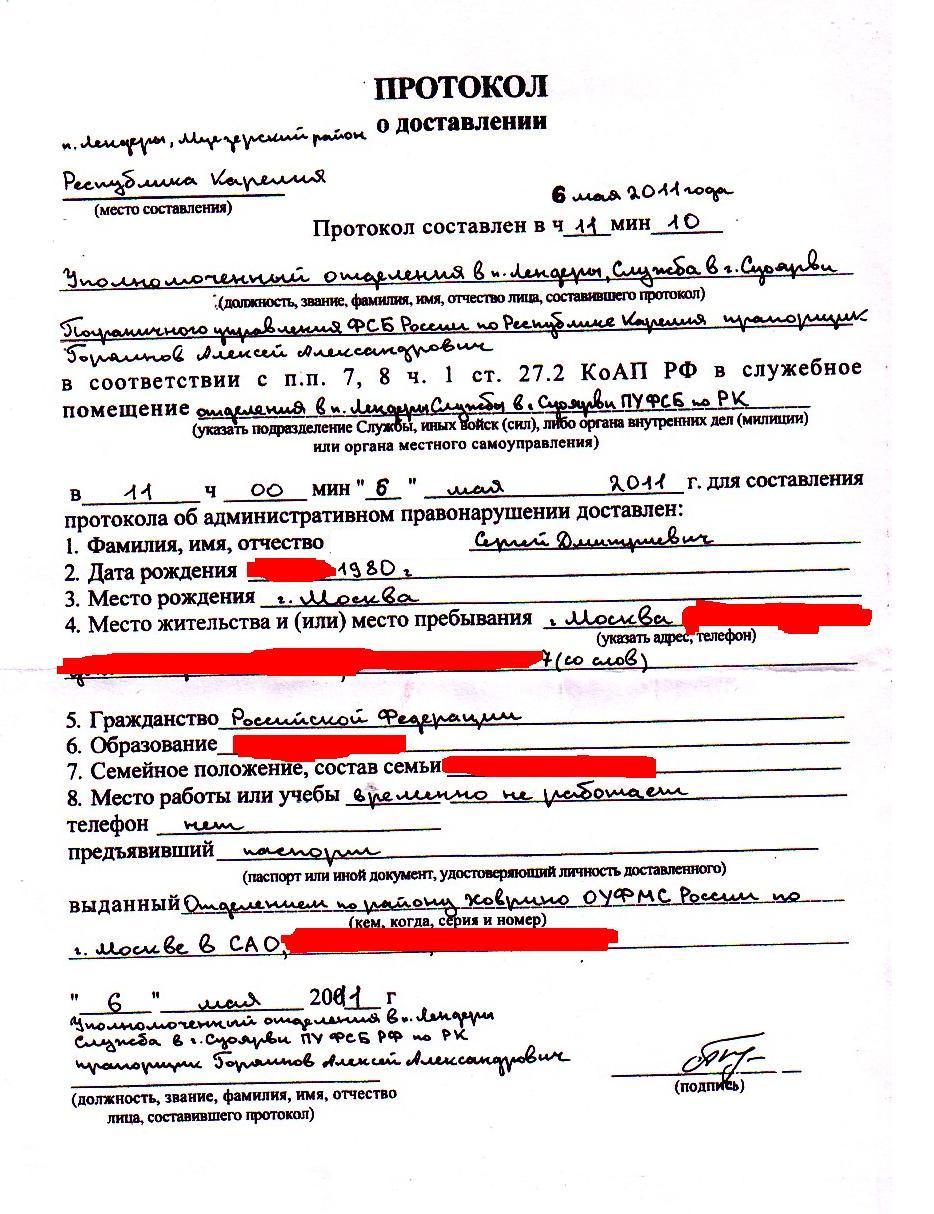 ПРОТОКОЛ
о доставлении
п. Лендеры, Муезерский район
Республика Карелия
(место составления)
6 мая 2011 года
Протокол составлен в ч 11 мин 10
Уполномоченный отделения в п. Лендеры, Служба в г. Суоярви
(должность, звание, фамилия, имя, отчество лица, составившего протокол)
Пограничного управления ФСБ России по Республике Карелия прапорщик
Горяинов Алексей Александрович
в соответствии с п.п. 7, 8 ч. 1 ст. 27.2 КоАП РФ в служебное
помещение отделения в п. Лендеры Службы в г. Суоярви ПУ ФСБ по РК
(указать подразделение Службы, иных войск (сил), либо органа внутренних дел (милиции)
или органа местного самоуправления)
в 11 ч 00 мин "6" мая 2011 г. для составления
протокола об административном правонарушении доставлен:
1. Фамилия, имя, отчество Сергей Дмитриевич
2. Дата рождения 1980 г
3. Место рождения г. Москва
4. Место жительства и (или) место пребывания г Москва
(указать адрес, телефон)
7 (со слов)
5. Гражданство Российской Федерации
6. Образование
7. Семейное положение, состав семьи
8. Место работы или учебы временно не работает
телефон нет
предъявивший паспорт
(паспорт или иной документ, удостоверяющий личность доставленного)
выданный Отделением по району Ховрино ОУФМС России по
(кем, когда, серия и номер)
г. Москве в САО,
"6" мая 2011 г
Уполномоченный отделения в п. Лендеры
Служба в г. Суоярви ПУ ФСБ РФ по РК
прапорщик Горяинов Алексей Александрович
(подпись)
(должность, звание, фамилия, имя, отчество
лица, составившего протокол)